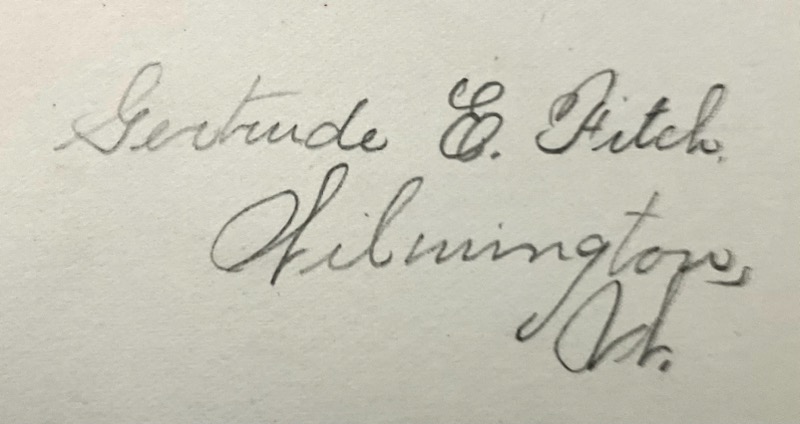 Gertrude E. Fitch.
Wilmington,
Vt.